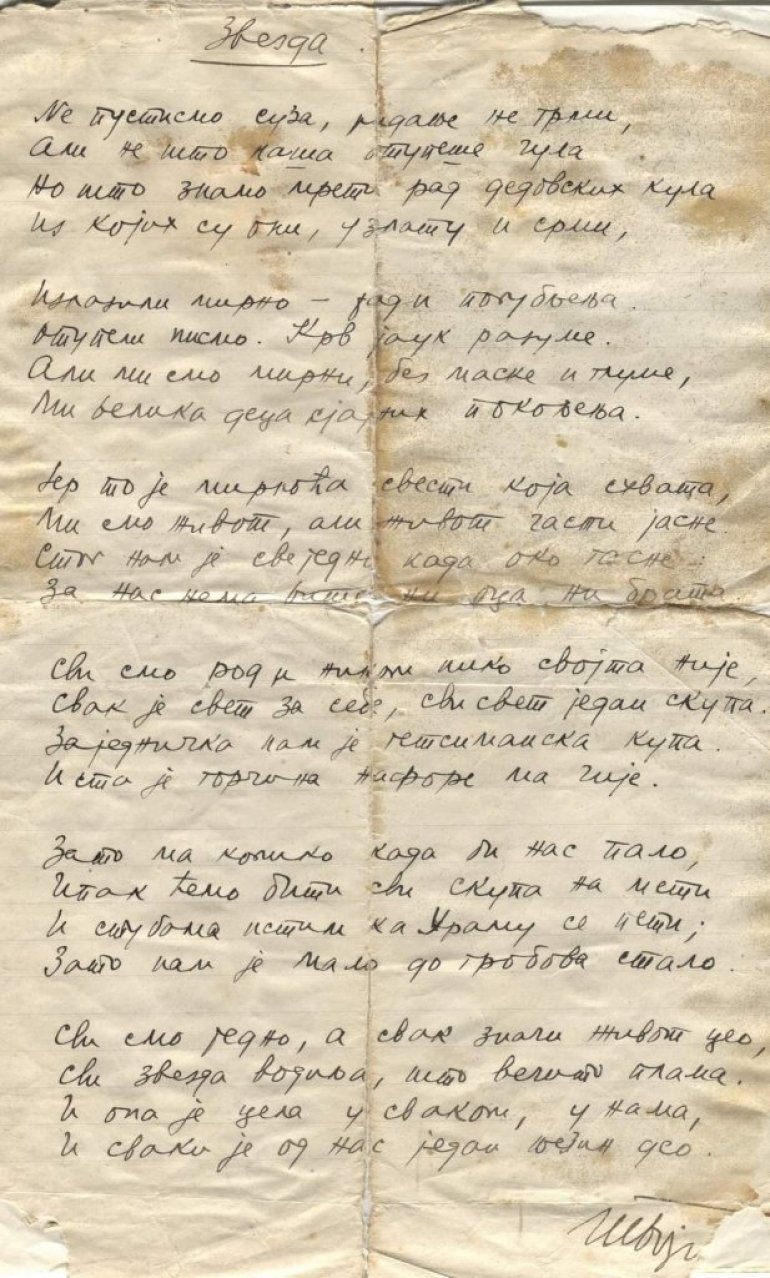 Звезда
Не пустисмо суза, ридање не грми,
Али не што наша отупеше чула
Но што знамо мрети рад дедовских кула
Из којих су они, у злату и срми,
Излазили мирно – ради погубљења.
Отупели нисмо. Крв јаук разуме.
Али ми смо мирни, без маске и глуме,
Ми велика деца сјајних покољења.
Јер то је мирноћа свести која схвата,
Ми смо живот, али живот части јасне.
Стог нам је свеједно када око гасне:
За нас нема више ни оца ни брата.
Сви смо род и ником нико својта није,
Свак је свет за себе, сви свет један скупа.
Заједничка нам је гетсиманска купа.
Иста је горчина нафоре ма чије.
Зато ма колико када би нас пало,
Ипак ћемо бити сви скупа на мети
И стубама истим ка Храму се пети;
Зато нам је мало до гробова стало.
Сви смо једно, а свак значи живот цео,
Сви звезда водиља, што вечито плама.
И она је цела у сваком, у нама,
И сваки је од нас један њезин део.